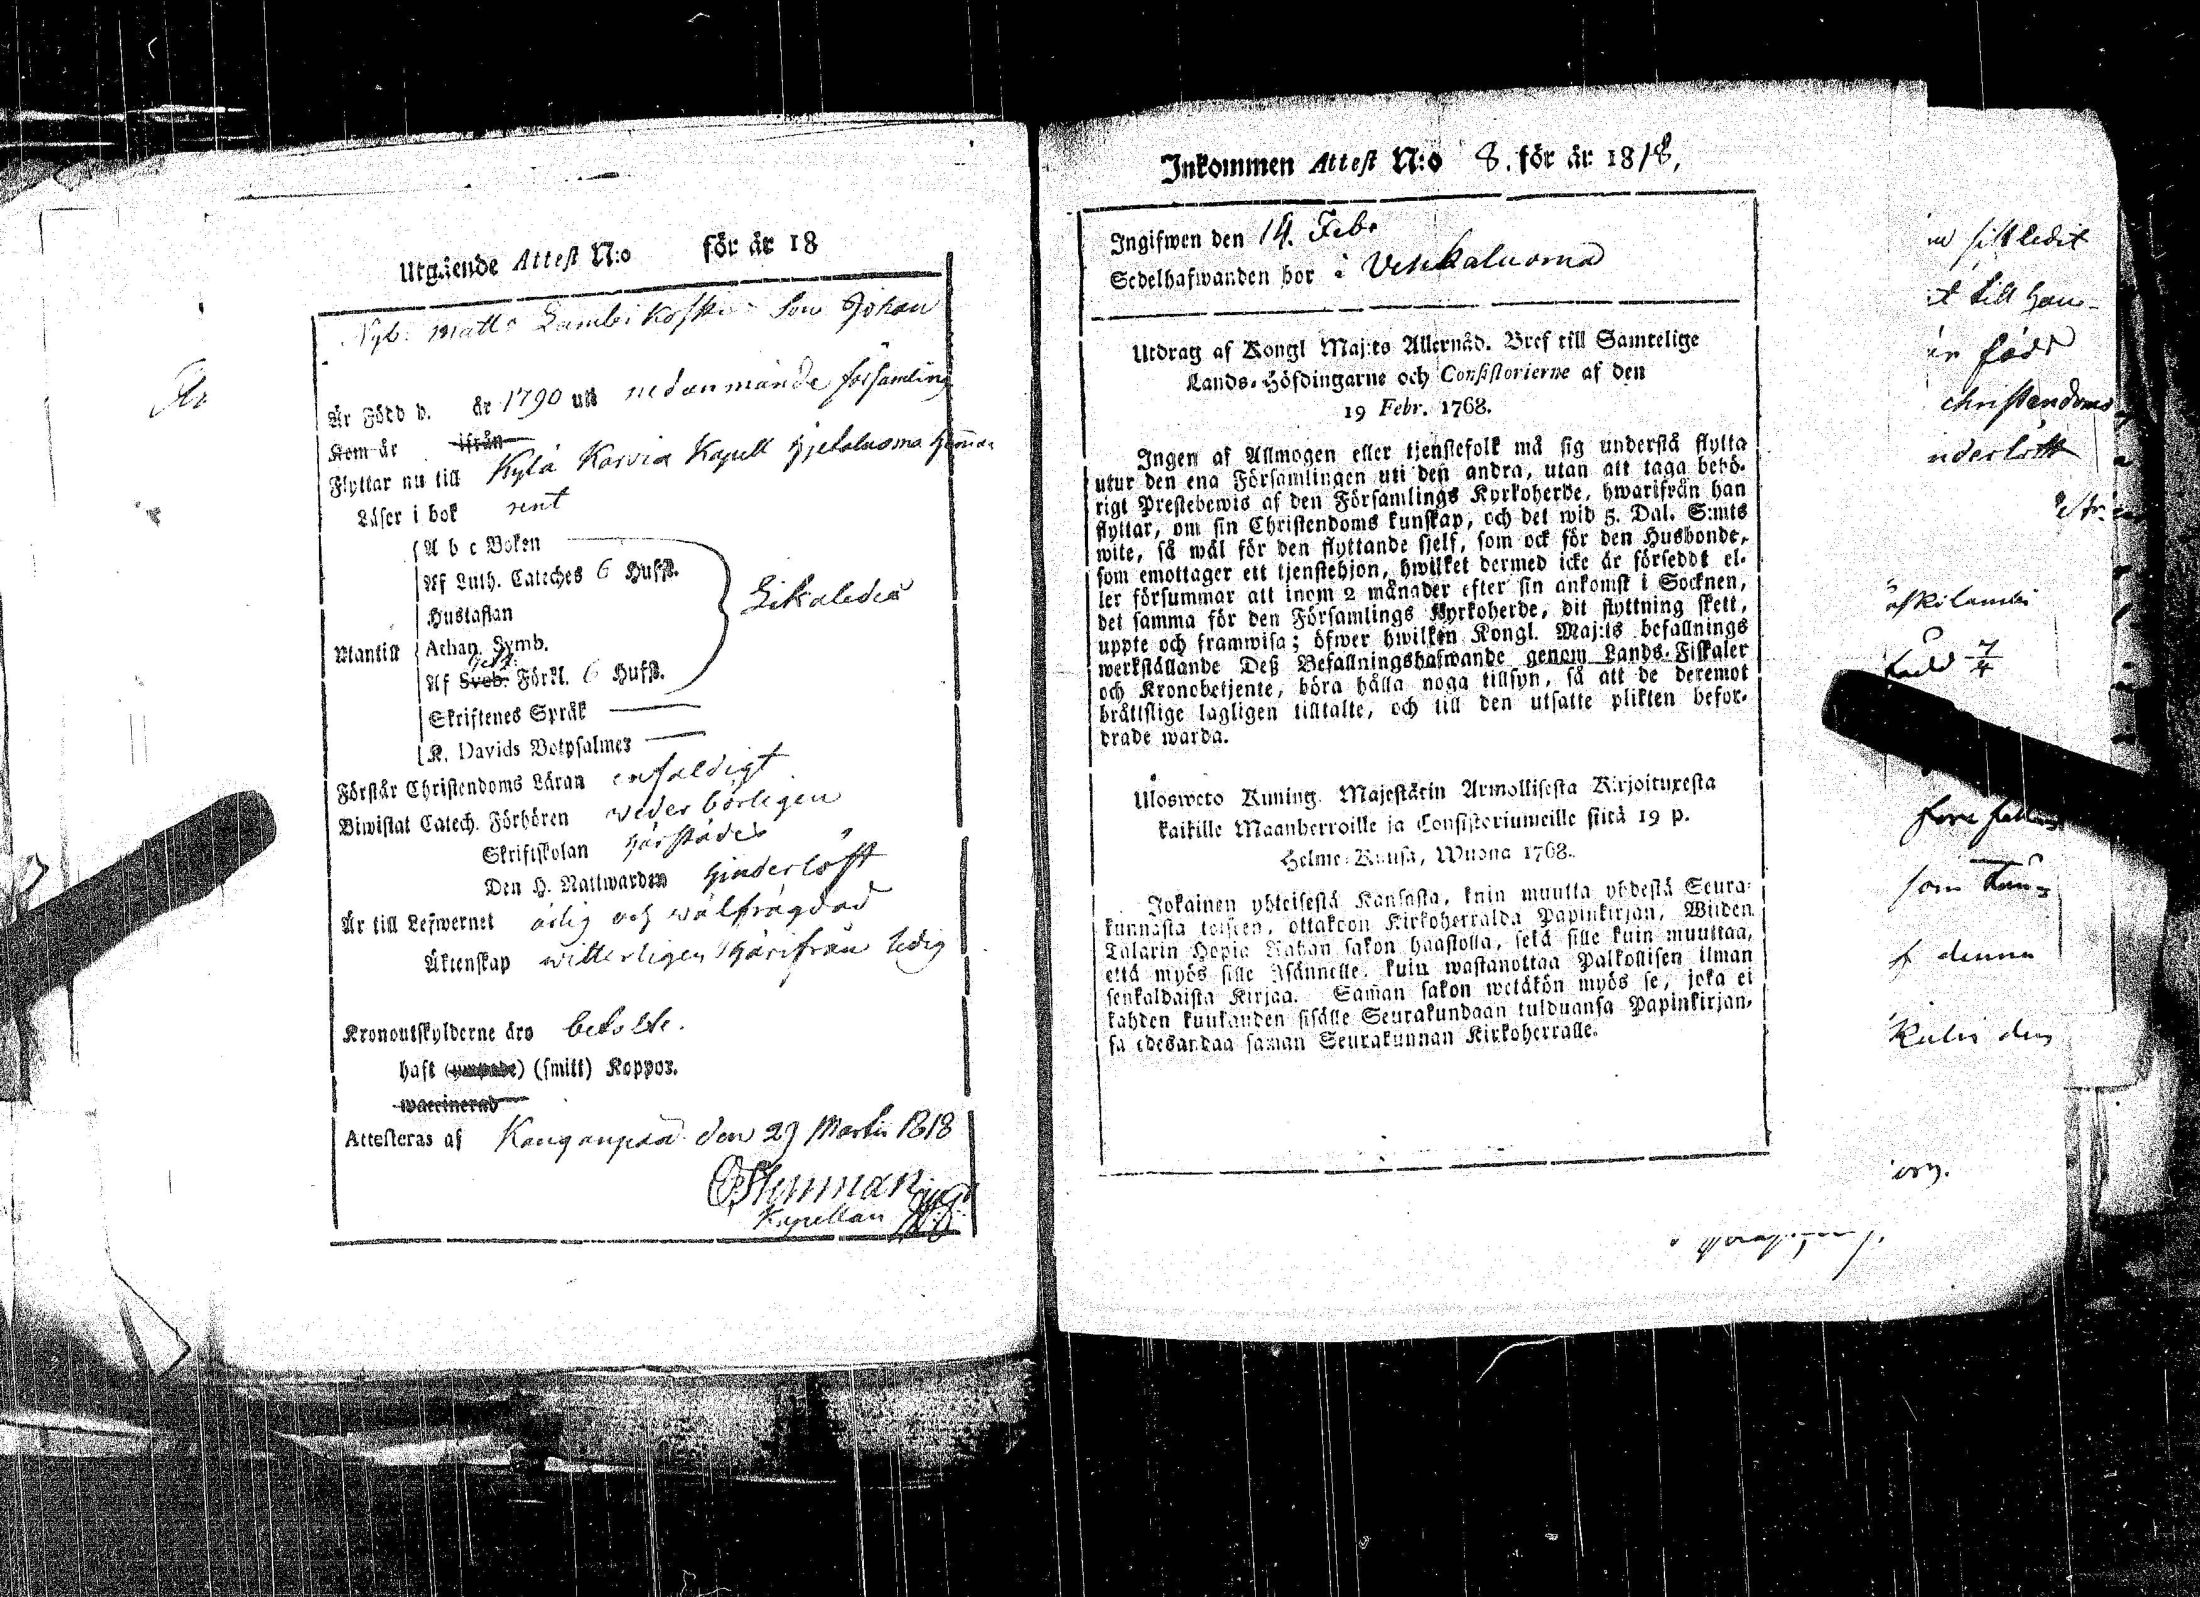 Utgående Attest N:o för år 18
Nyb: Matts Lambikoski Son Johan
Är Född d. år 1790 uti nedanmände församling
Kom år ifrån
Flyttar nu till Kylä Karvia Kapell
Läser i bok rent
A b c Boken
Af Luth. Cateches 6 Hufst.
Hustaflan
Utantill
Athan. Symb.
Af Sveb. Förkl. 6 Hufst.
Likaledes
Skriftenes Språk
K. Davids Botpsalmer
Förstår Christendoms Läran enfaldigt
Biwistat Catech. Förhören wederbörligen
Skriftskolan härstädes
Den H. Nattwarden hinderlöst
Är till Lefwernet ärlig och wälfrägdad
Äktenskap witterligen härifrån ledig
Kronoutskylderne äro betalte.
haft (ympade) (smitt) Koppor.
waccinerad
Attesteras af Kanganpää den 29 Martii 1818
Kapellan
Inkommen Attest N:o 8. för år 1818,
Ingifwen den 14. Febr
Sedelhafwanden bor i Vehkaluoma
Utdrag af Kongl Maj:ts Allernåd. Bref till Samtelige
Lands-Höfdingarne och Consistorierne af den
19 Febr. 1768.
Ingen af Allmogen eller tjenstefolk må sig understå flytta
utur den ena Församlingen uti den andra, utan att taga behö-
rigt Prestebewis af den Församlings Kyrkoherde, hwarifrån han
flyttar, om sin Christendoms kunskap, och det wid 5. Dal. S:mts
wite, så wäl för den flyttande sjelf, som ock för den Husbonde,
som emottager ett tjenstehjon, hwilket dermed icke är förseddt el-
ler försummar att inom 2 månader efter sin ankomst i Socknen,
det samma för den Församlings Kyrkoherde, dit flyttning skett,
uppte och framwisa; öfwer hwilken Kongl. Maj:ts befallnings
werkställande Deß Befallningshafwande genom Lands-Fiskaler
och Kronobetjente, böra hålla noga tillsyn, så att de deremot
bråttslige lagligen tilltalte, och till den utsatte plikten befor-
drade warda.
Ulosweto Kuning. Majestätin Armollisesta Kirjoituxesta
kaikille Maanherroille ja Consistoriumeille siitä 19 p.
Helme-Kuusa, Wuona 1768.
Jokainen yhteisestä Kansasta, kuin muutta yhdestä Seura-
kunnasta toiseen, ottakoon Kirkoherralda Papinkirjan, Wiiden
Talarin Hopia Rahan sakon haastolla, sekä sille kuin muuttaa,
että myös sille Isännelle, kuin wastanottaa Palkollisen ilman
senkaldaista Kirjaa. Saman sakon wetäkön myös se, joka ei
kahden kuukauden sisälle Seurakundaan tulduansa Papinkirjan-
sa edesandaa saman Seurakunnan Kirkoherralle.
christendoms
som
f denna